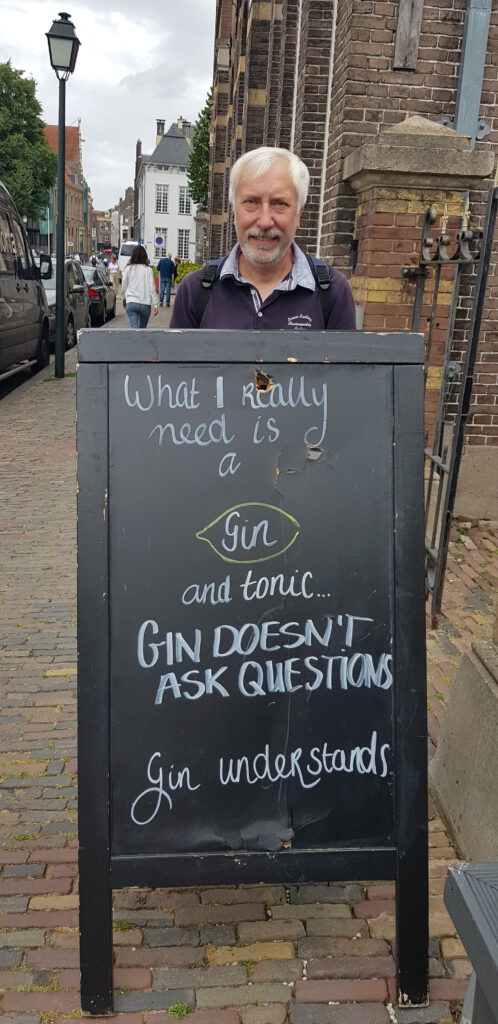 What I really
need is
a
Gin
and tonic...
GIN DOESN'T
ASK QUESTIONS
Gin understands